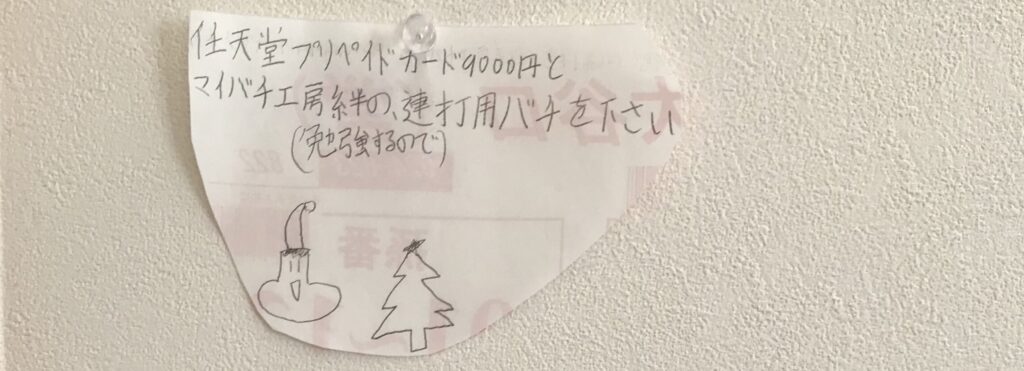 任天堂プリペイドカード9000円と
マイバチ工房絆の、連打用バチを下さい
(勉強するので)
822